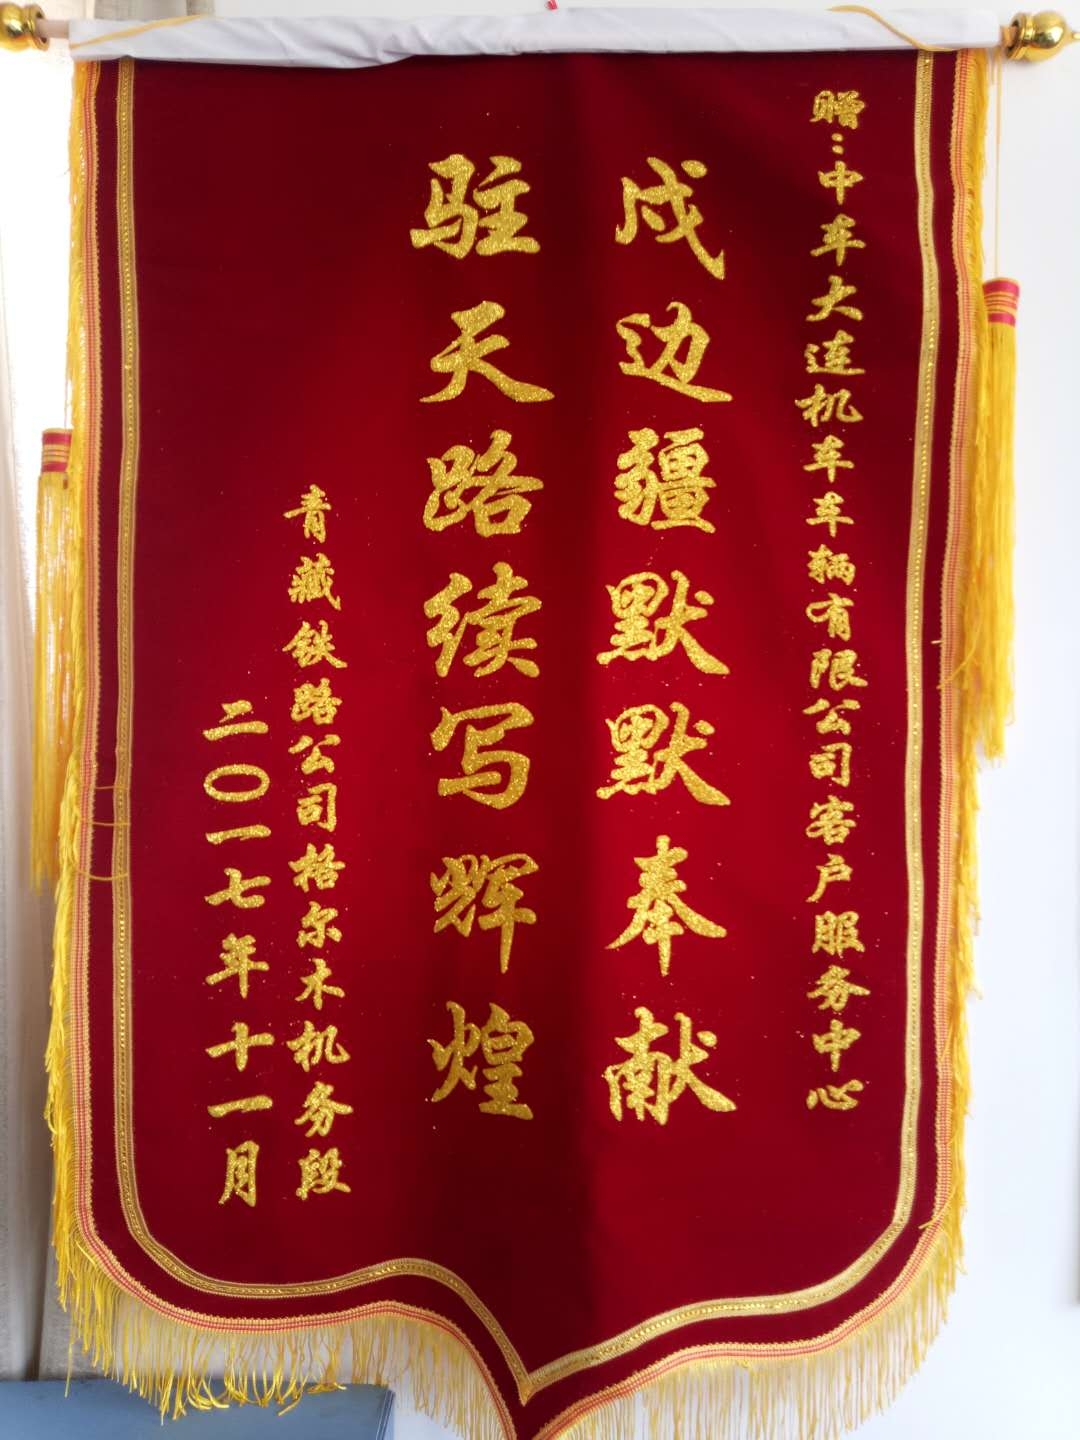 赠:中车大连机车车辆有限公司客户服务中心
戍边疆默默奉献
驻天路续写辉煌
青藏铁路公司格尔木机务段
二〇一七年十一月